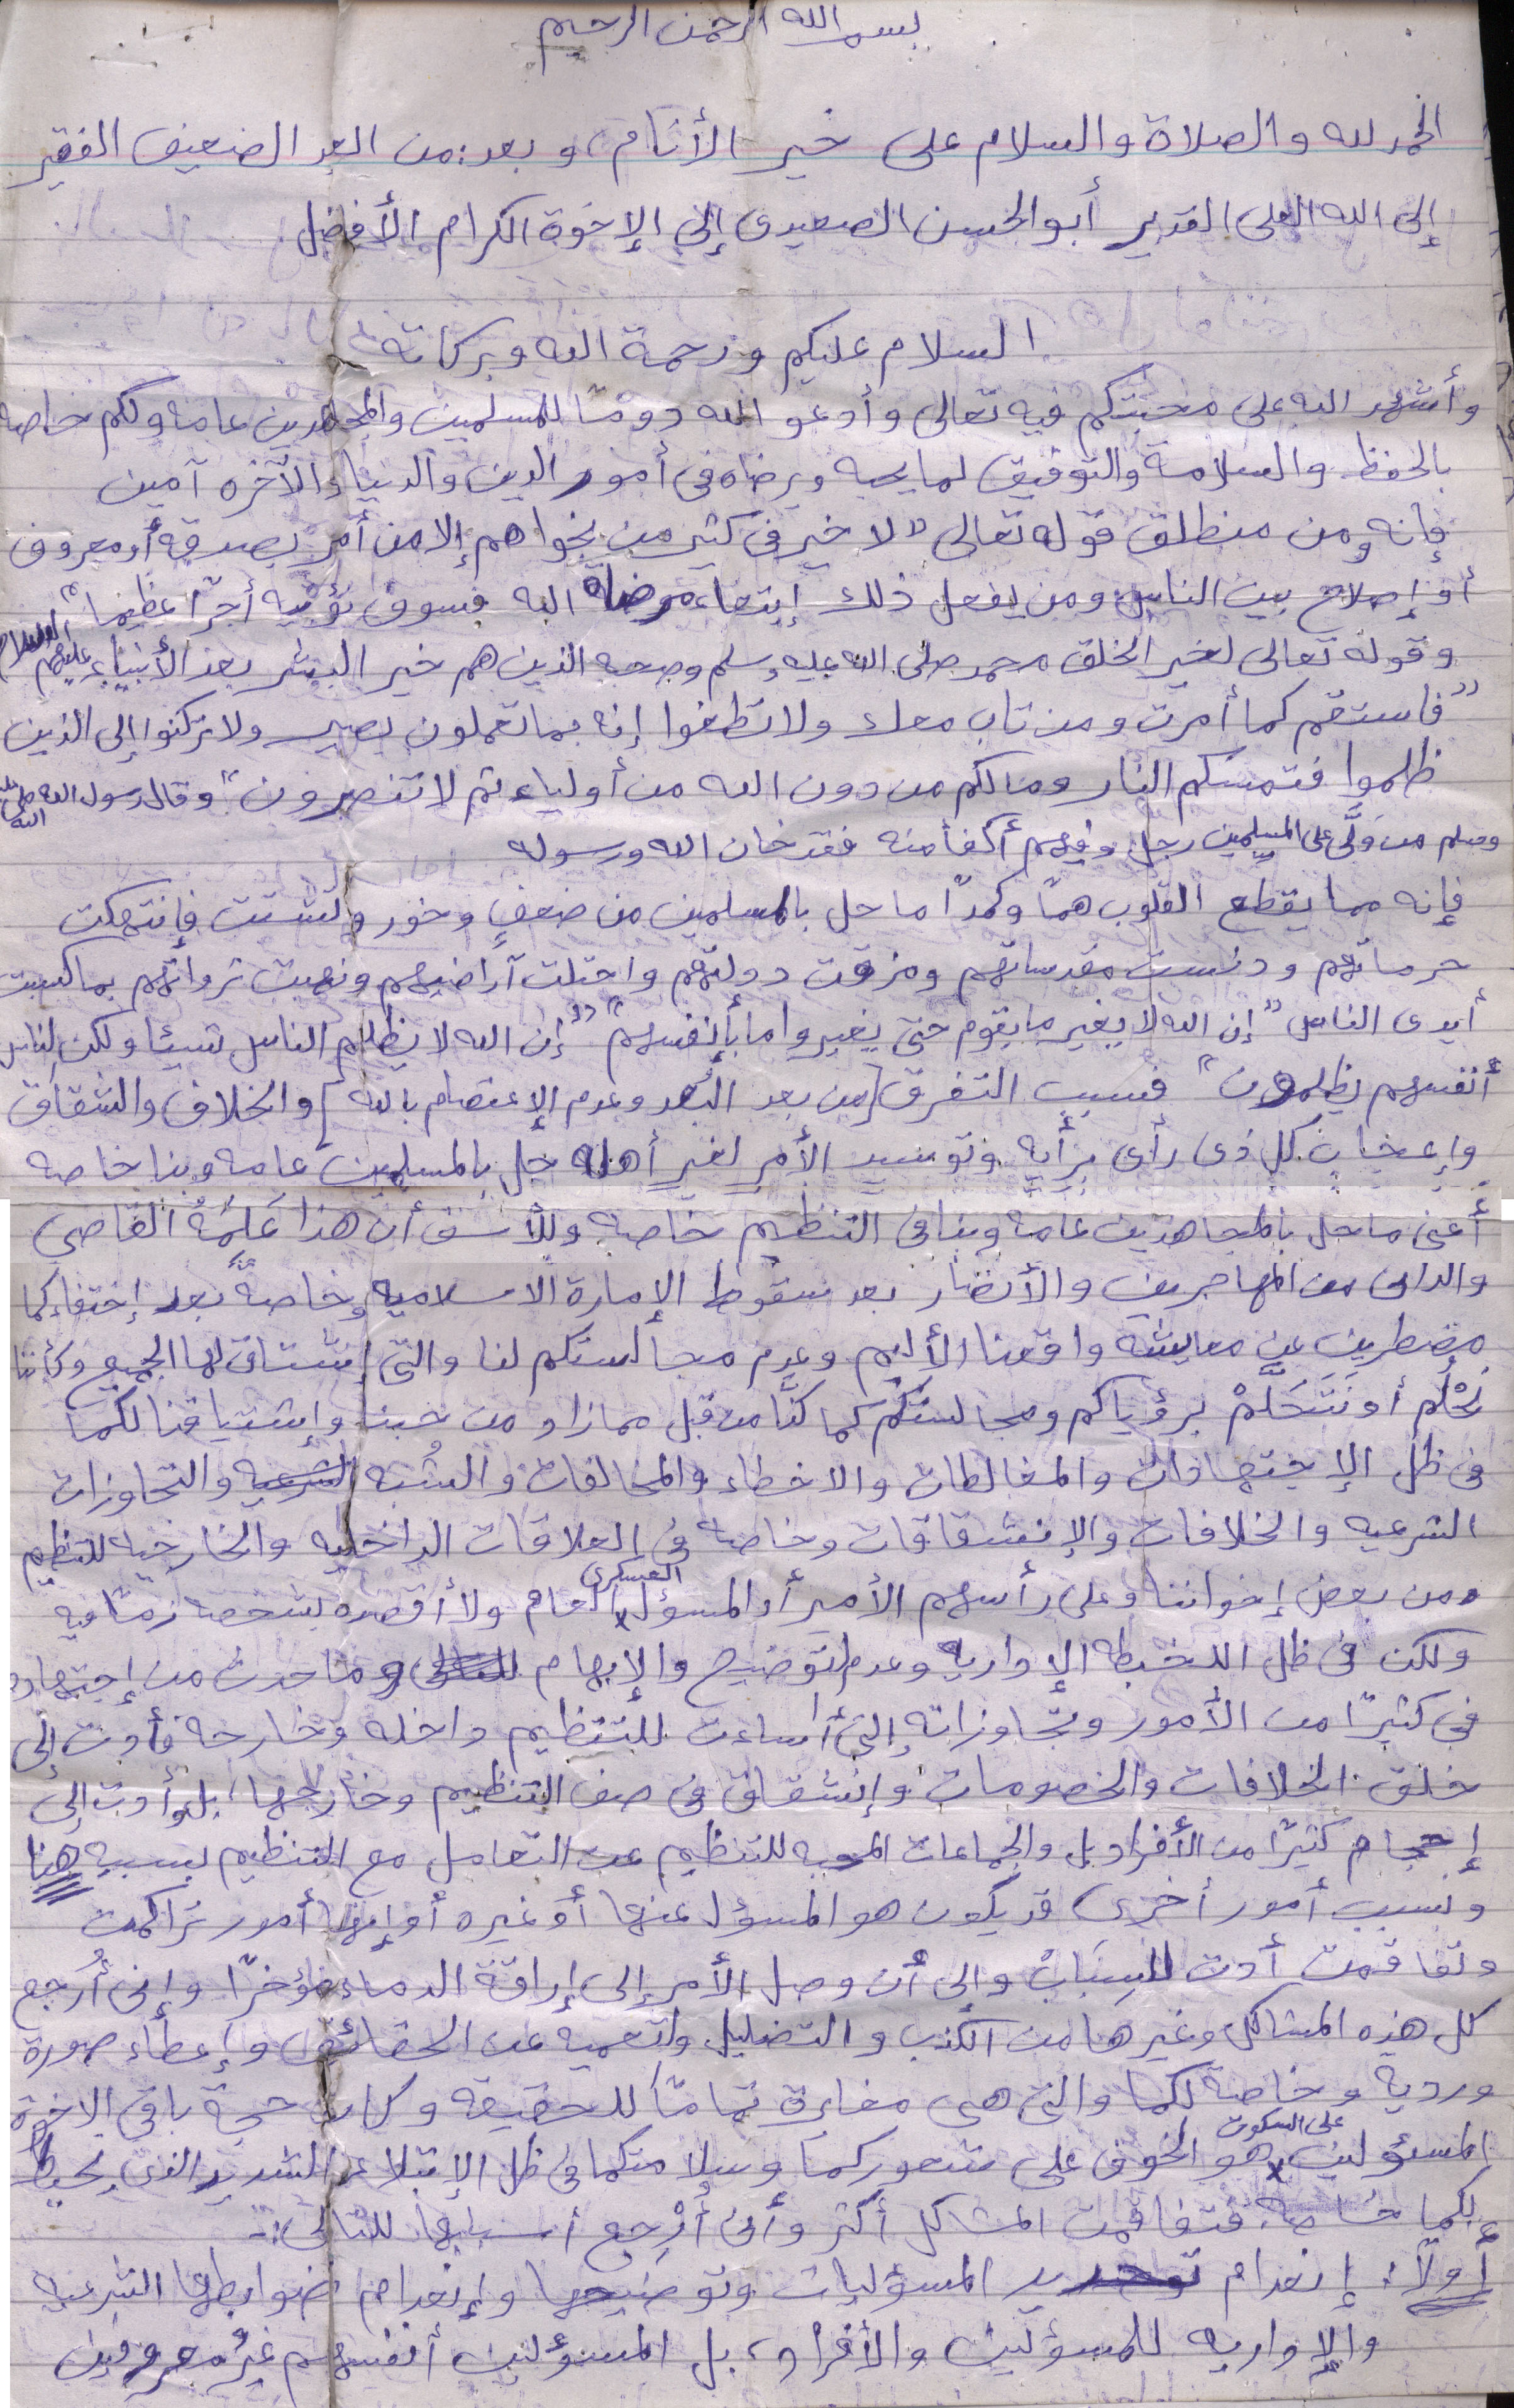 بسم الله الرحمن الرحيم
الحمد لله والصلاة والسلام على خير الأنام، وبعد: من العبد الضعيف الفقير
إلى الله العلى القدير أبو الحسن الصعيدى إلى الإخوة الكرام الأفاضل
السلام عليكم ورحمة الله وبركاته
وأشهد الله على محبتكم فيه تعالى وأدعو الله دومًا للمسلمين والمجاهدين عامه ولكم خاصه
بالحفظ والسلامة والتوفيق لما يحبه ويرضاه فى أمور الدين والدنياء والآخره آمين
فإنه ومن منطلق قوله تعالى "لا خير فى كثير من نجواهم إلا من أمر بصدقه أو معروف
أو إصلاح بين الناس ومن يفعل ذلك إبتغاء مرضاة الله فسوف نؤتيه أجرًا عظيما"
وقوله تعالى لخير الخلق محمد صلى الله عليه وسلم وصحبه الذين هم خير البشر بعد الأنبياء عليهم السلام
"فاستقم كما أمرت ومن تاب معك ولا تطغوا إنه بما تعملون بصير ولا تركنوا إلى الذين
ظلموا فتمسكم النار ومالكم من دون الله من أولياء ثم لا تنصرون" وقال رسول الله صلى الله عليه
وسلم من ولَّى على المسلمين رجل وفيهم أكفأ منه فقد خان الله ورسوله
فإنه مما يقطع القلوب همًا وكمدًا ما حل بالمسلمين من ضعفٍ وخور وتشتت فإنتهكت
حرماتهم ودنست مقدساتهم ومزقت دولتهم واحتلت آراضيهم ونهبت ثرواتهم بما كسبت
أيدى الناس "إن الله لا يغير ما بقوم حتى يغيروا ما بأنفسهم" "إن الله لا يظلم الناس شيئا ولكن الناس
أنفسهم يظلمون" فسبب التفرق [من بعد البُعد وعدم الإعتصام بالله] والخلاف والشقاق
وإعجاب كل ذى رأى برأيه وتوسيد الأمر لغير أهله حل بالمسلمين عامه وبنا خاصه
أعنى ما حل بالمجاهدين عامه وبنا فى التنظيم خاصه وللأسف أن هذا عَلِمَهُ القاصي
والدانى من المهاجرين والأنصار بعد سقوط الإمارة الاسلاميه وخاصةً بعد إختفاءكما
مضطرين عن معايشه واقعنا الأليم وعدم مجالستكم لنا والتى إشتاق لها الجميع وكأننا
نَحْلُم أو نَتَحَلَّمْ برؤياكم ومجالستكم كما كنَّا من قبل مما زاد من حبنا وإشتياقنا لكما
فى ظل الإجتهادات والمغالطات والاخطاء والمخالفات والشُبه والتجاوزات
الشرعيه والخلافات والإنشقاقات وخاصه فى العلاقات الداخليه والخارجيه للتنظيم
ومن بعض إخواننا وعلى رأسهم الأمير أو المسؤل العسكرى العام ولا أقصده بشخصه
ولكن فى ظل اللخبطه الإداريه وعدم التوضيح والإبهام وما حدث من إجتهاده
فى كثيرًا من الأمور وتجاوزاته إلتى أساءت للتنظيم داخله وخارجه فأدت إلى
خلق الخلافات والخصومات وإنشقاق فى صف التنظيم وخارجها، بل وأدت إلى
إحجام كثيرًا من الأفراد بل والجماعات المحبه للتنظيم عن التعامل مع التنظيم بسببه هنا
وبسبب أمور أخرى قد يكون هو المسؤل عنها أو غيره أو إنها أمور تراكمت
وتفاقمت أدت للسِبَاب وإلى أن وصل الأمر إلى إراقة الدماء مؤخرًا وإنى أُرجع
كل هذه المشاكل وغيرها من الكذب والتضليل والتعميه عن الحقائق وإعطاء صورة
ورديه وخاصه لكما والتى هى مغايرة تمامًا للحقيقه وكان حجة باقى الاخوة
المسؤلين على السكوت هو الخوف على شعوركما وسلامتكما فى ظل الإبتلاء الشديد الذى يحيط
بكما خاصه فتفاقمت المشاكل أكثر وأنى أُرْجِع أسبابها للتالى:-
أولًا: إنعدام تحديد المسؤليات وتوضيحها وإنعدام ضوابطها الشرعيه
والإداريه للمسؤلين والأفراد، بل المسؤلين أنفسهم غير معروفين